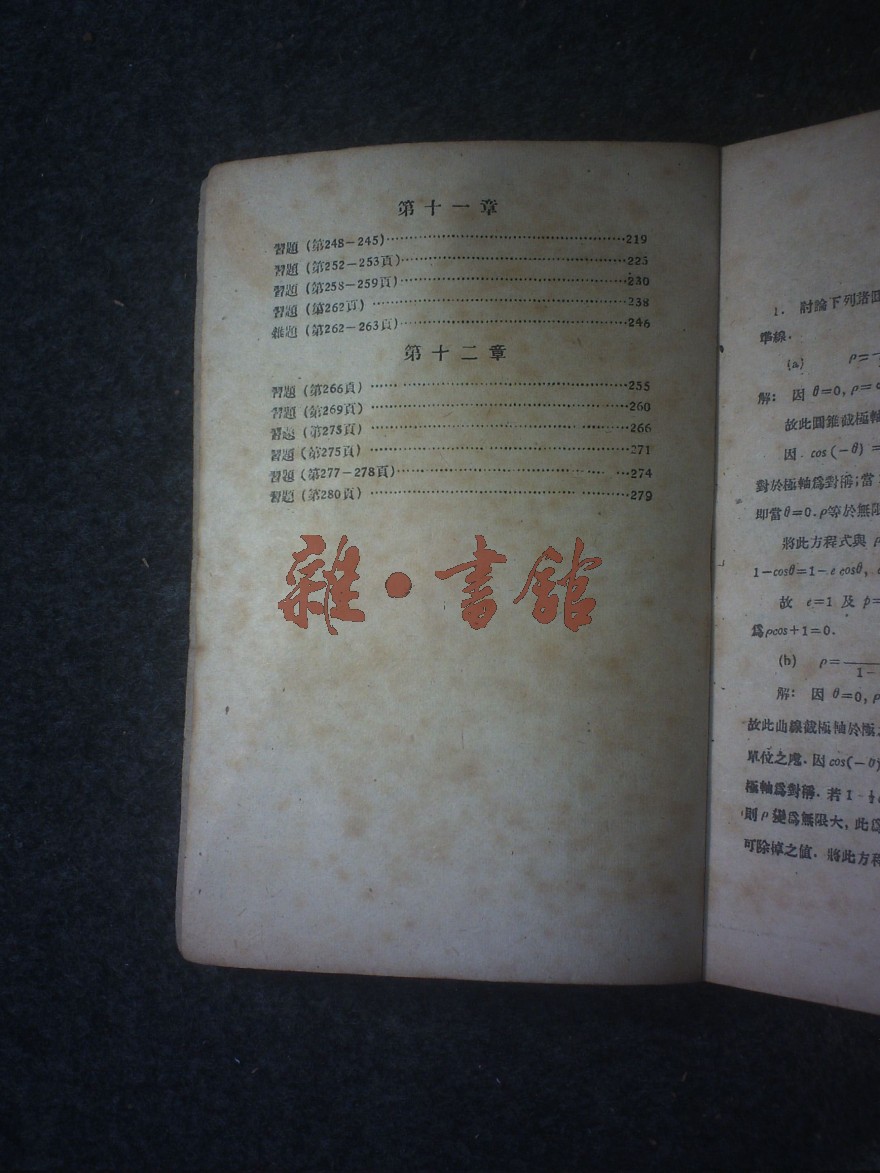 第十一章
習題（第248－245）…219
習題（第252－253頁）…223
習題（第258－259頁）…230
習題（第262頁）…238
雜題（第262－263頁）…246
第十二章
習題（第266頁）…255
習題（第269頁）…260
習題（第273頁）…266
習題（第275頁）…271
習題（第277－278頁）…274
習題（第280頁）…279
雜•書館
1. 討論下列諸圓
準線.
(a) ρ=
解: 因 θ=0, ρ=
故此圓錐截極軸
因 cos (－θ) =
對於極軸爲對稱;當
即當θ=0. ρ等於無限
將此方程式與 ρ
1－cosθ=1－e cosθ,
故 e=1 及 p=
爲ρcos+1=0.
(b) ρ=
1－
解: 因 θ=0, ρ
故此曲線截極軸於極
單位之處. 因cos(－θ)
極軸爲對稱. 若 1－
則ρ變爲無限大, 此
可除掉之值. 將此方程